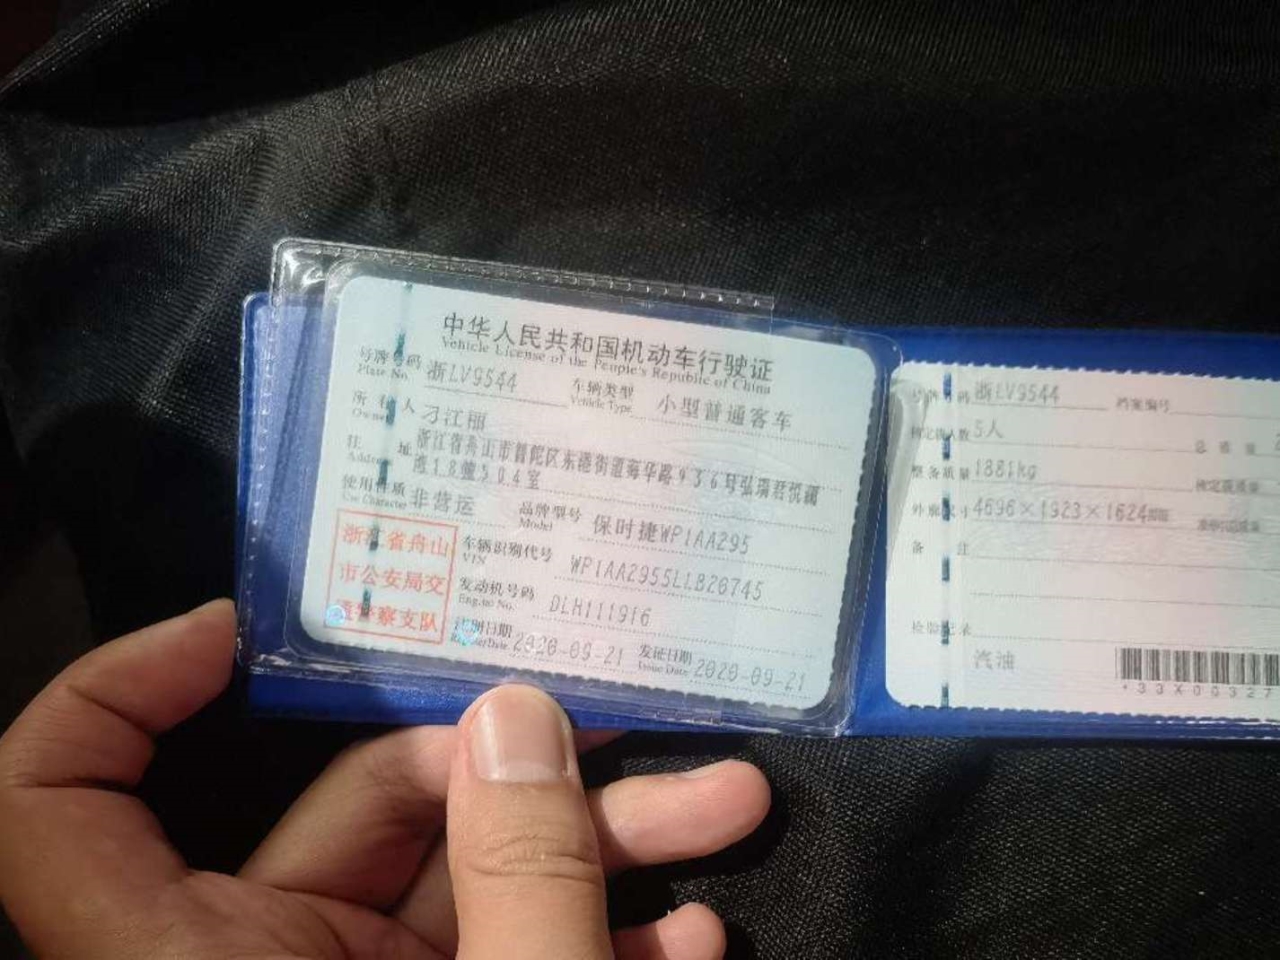 中华人民共和国机动车行驶证
Vehicle License of the People's Republic of China
号牌号码 浙LV9544 车辆类型 小型普通客车
Plate No. Vehicle Type
所有人 刁江丽
Owner
住址 浙江省舟山市普陀区东港街道海华路936号弘瑞君悦澜
Address 湾18幢504室
使用性质 非营运 品牌型号 保时捷WP1AA295
Use Character Model
浙江省舟山
市公安局交
通警察支队
车辆识别代号 WP1AA2955LLB26745
VIN
发动机号码 DLH111916
Engine No.
注册日期 2020-09-21 发证日期 2020-09-21
Register Date Issue Date
号牌号码 浙LV9544 档案编号
核定载人数 5人 总质量
整备质量 1881kg 核定载质量
外廓尺寸 4696×1923×1624
备注
检验记录
汽油